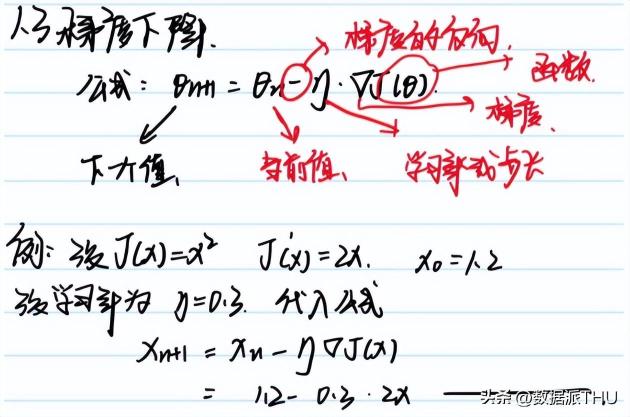 1、梯度下降.
梯度的反方向.
公式: θn+1 = θn - η · ∇J(θ).
函数.
梯度.
下一个值、
当前值、
学习率或步长
例: 设 J(x)=x² J'(x)=2x. x₀=1.2
设学习率为 η=0.3. 代入公式
xn+1 = xn - η∇J(x)
= 1.2 - 0.3 · 2x
头条 @数据派THU